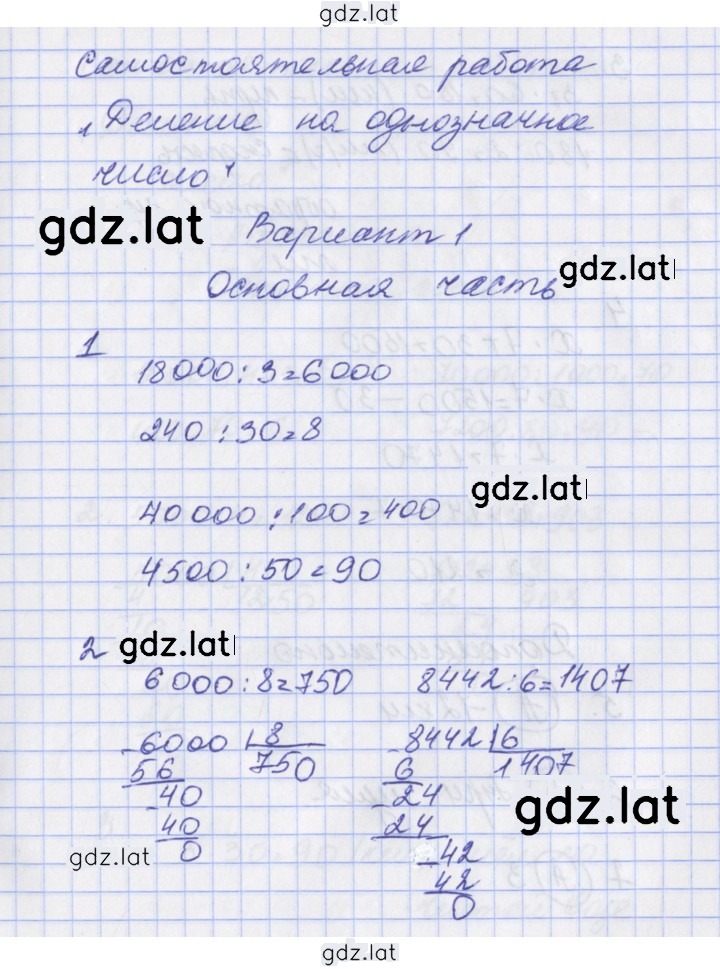 gdz.lat
Самостоятельная работа
"Деление на однозначное
число"
gdz.lat Вариант 1
gdz.lat
Основная часть
1
18000:3=6000
240:30=8
gdz.lat
40000:100=400
4500:50=90
2 gdz.lat
6000:8=750 8442:6=1407
-6000 |8 -8442 |6
56 750 6 1407
-40 -24
40 24
0 -42
42
0
gdz.lat
gdz.lat
gdz.lat